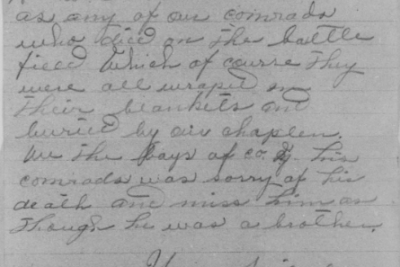 as any of our comrads
who died on the battle
field which of course they
were all wraped in
their blankets and
buried by our chaplen.
We the Boys of co. his
comrads was sorry of his
death and miss him as
though he was a brother.